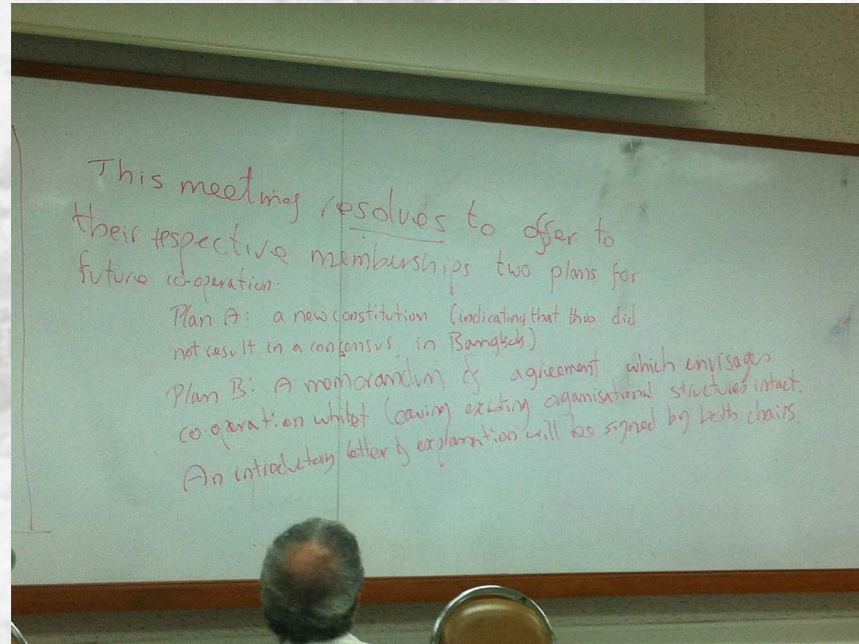 This meeting resolves to offer to
their respective memberships two plans for
future co-operation:
Plan A: a new constitution (indicating that this did
not result in a consensus in Bangkok)
Plan B: A memorandum of agreement which envisages
co-operation whilst leaving existing organisational structures intact.
An introductory letter of explanation will be signed by both chairs